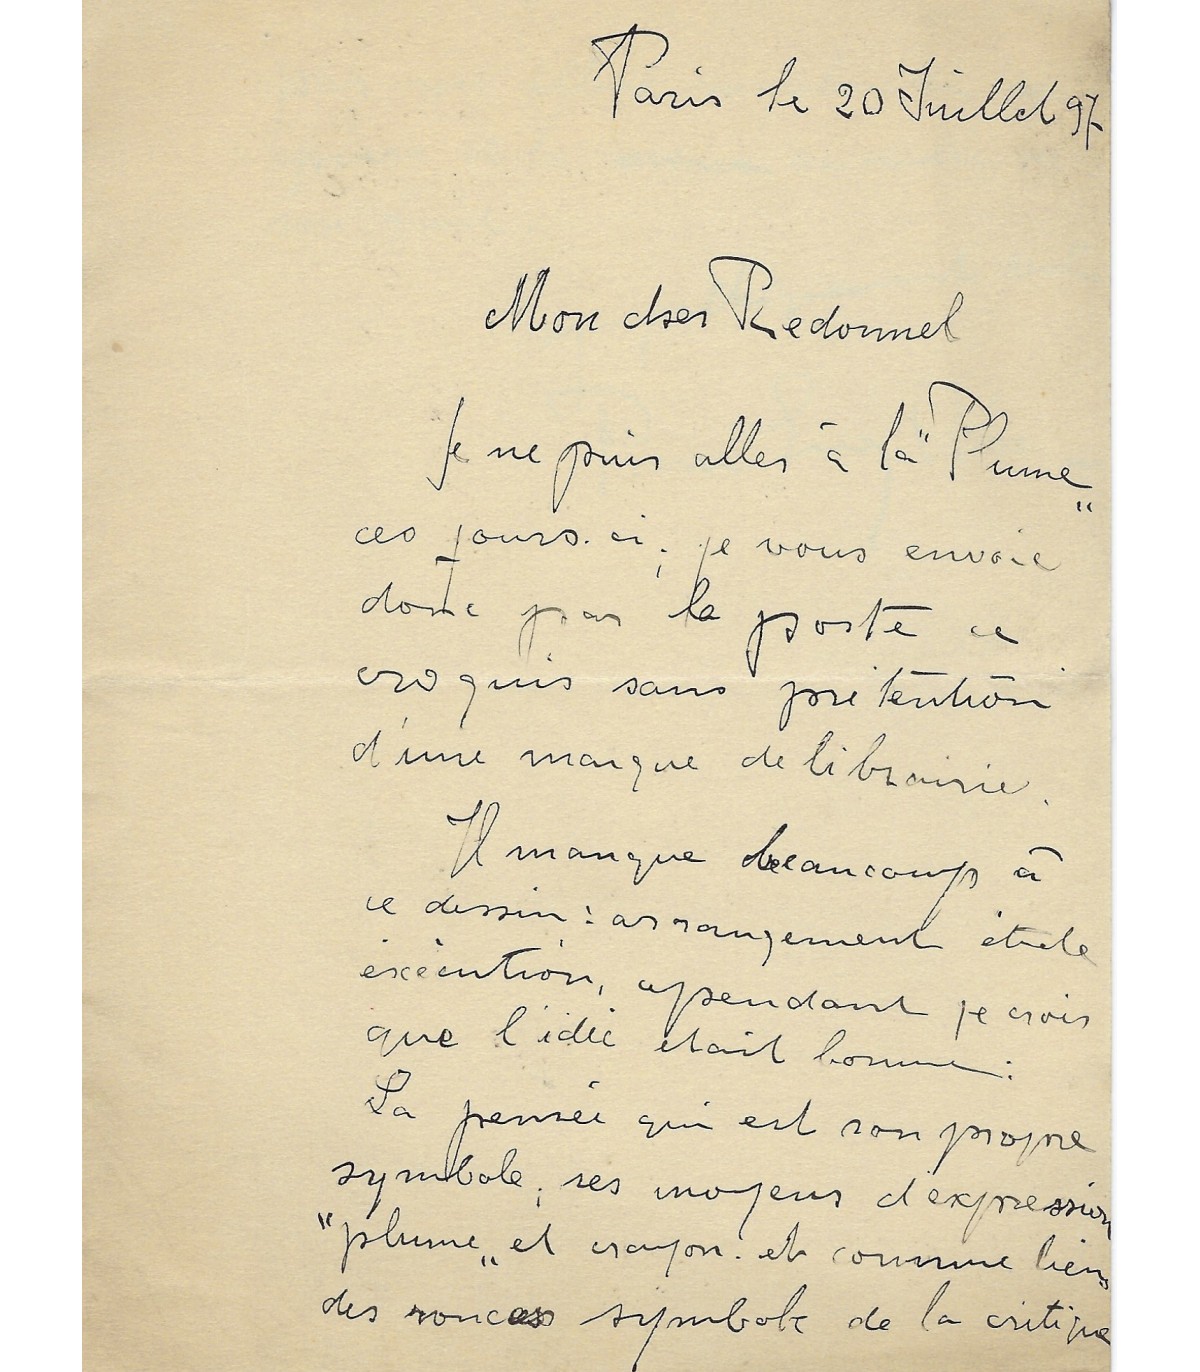 Paris le 20 Juillet 97
Mon cher Redonnel
Je ne puis aller à la "Plume"
ces jours-ci; je vous envoie
donc par la poste ce
croquis sans prétention
d'une marque de librairie.
Il manque beaucoup à
ce dessin: arrangement étude
exécution, cependant je crois
que l'idée était bonne:
La pensée qui est son propre
symbole, ses moyens d'expression
"plume" et crayon. et comme liens
des ronces symbole de la critique